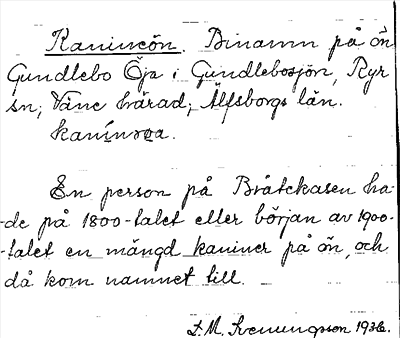 Kanineön. Binamn på ön
Gundlebo Öja i Gundlebosjön, Ryr
sn; Väne härad; Älfsborgs län.

En person på Bråtekasen ha-
de på 1800-talet eller början av 1900-
-talet en mängd kaniner på ön, och
då kom namnet till.
D. M. Svenungsson 1936.